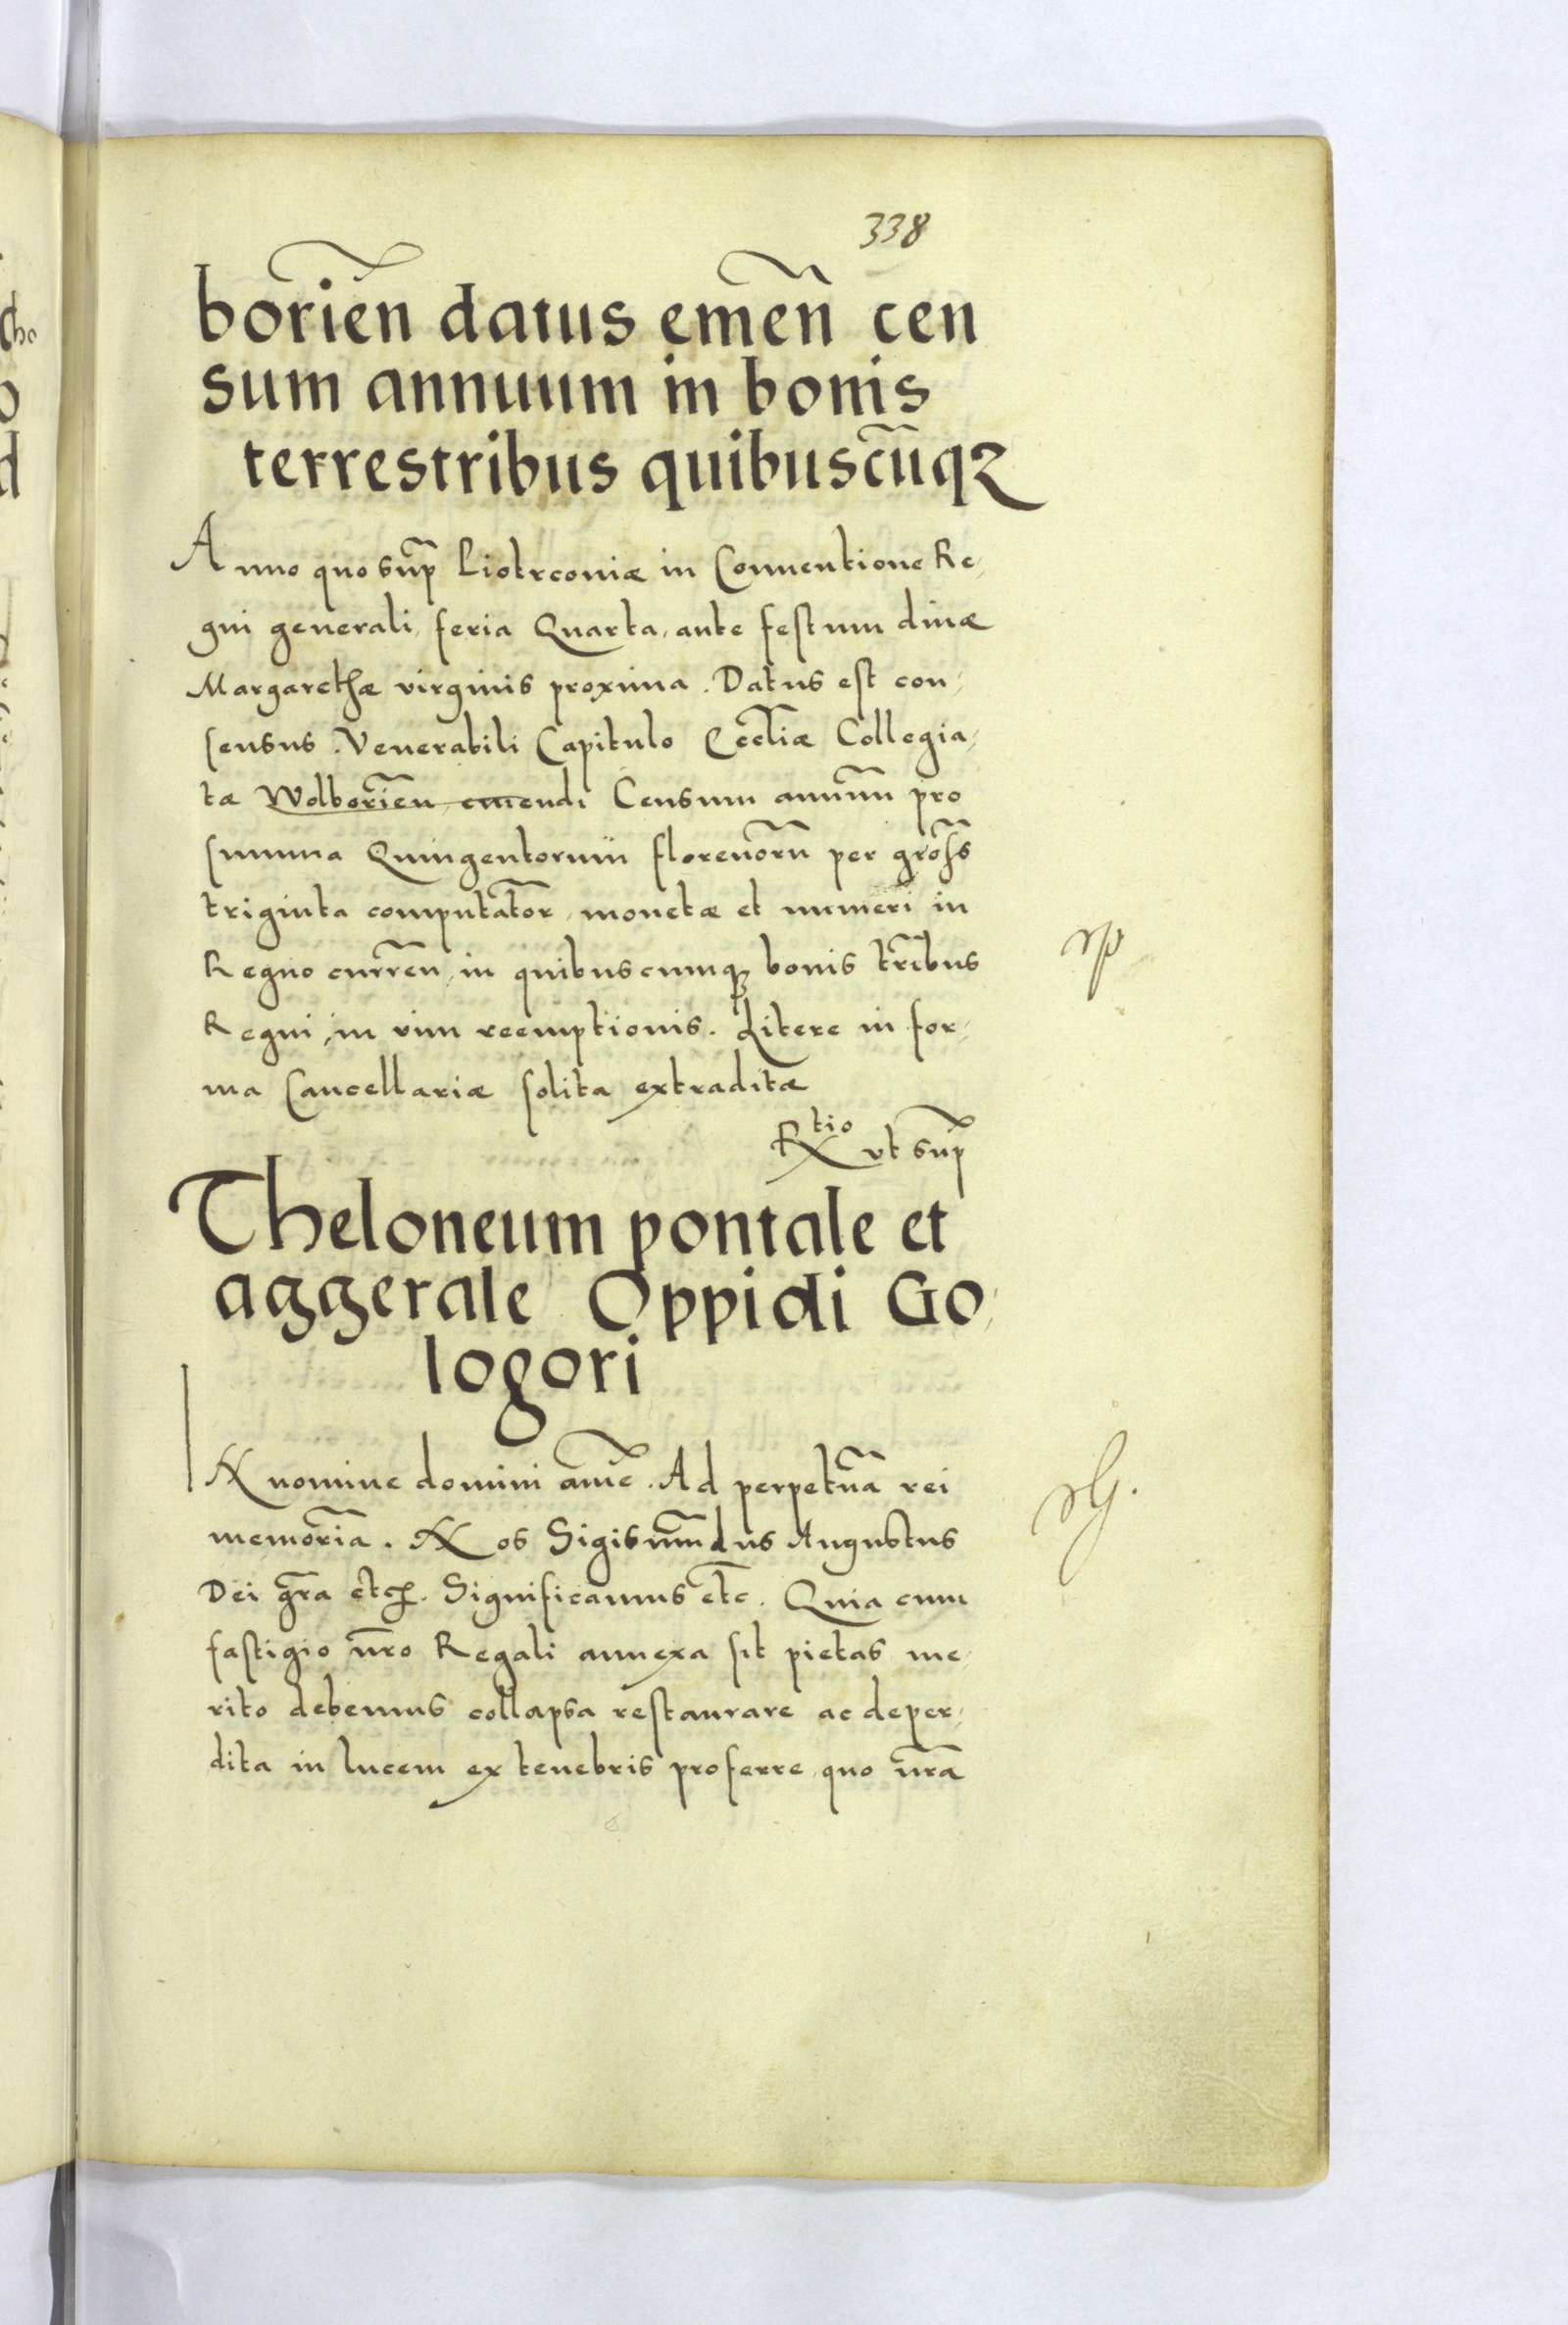 338
borieñ datus emeñ cen
sum annuum in bonis
terrestribus quibuscũqꝫ
Anno quo sup̃ Piotrconiæ in Conuentione Re,
gni generali, feria Quarta, ante festum diuæ
Margarethæ virginis proxima. Datus est con,
sensus. Venerabili Capitulo Eccl̃iæ Collegia,
tæ Wolborieñ, emendi Censum annuũ pro
summa Quingentorum florenorũ per gross̃
triginta computat̃or, monetæ et numeri in
Regno curreñ, in quibuscumqꝫ bonis tr̃ribus
Regni, in vim reemptionis. Litere in for,
ma Cancellariæ solita extraditæ
Rtio vt sup̃
Theloneum pontale et
aggerale Oppidi Go,
logori
IN nomine domini amẽ. Ad perpetuã rei
memoriã. Nos Sigismũdus Augustus
Dei gr̃a etcꝫ. Significamus etc̃. Quia cum
fastigio nr̃o Regali annexa sit pietas me,
rito debemus collapsa restaurare ac deper,
dita in lucem ex tenebris proferre, quo nr̃a